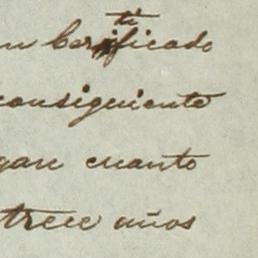 un certificado
consiguiente
gan cuanto
trece años